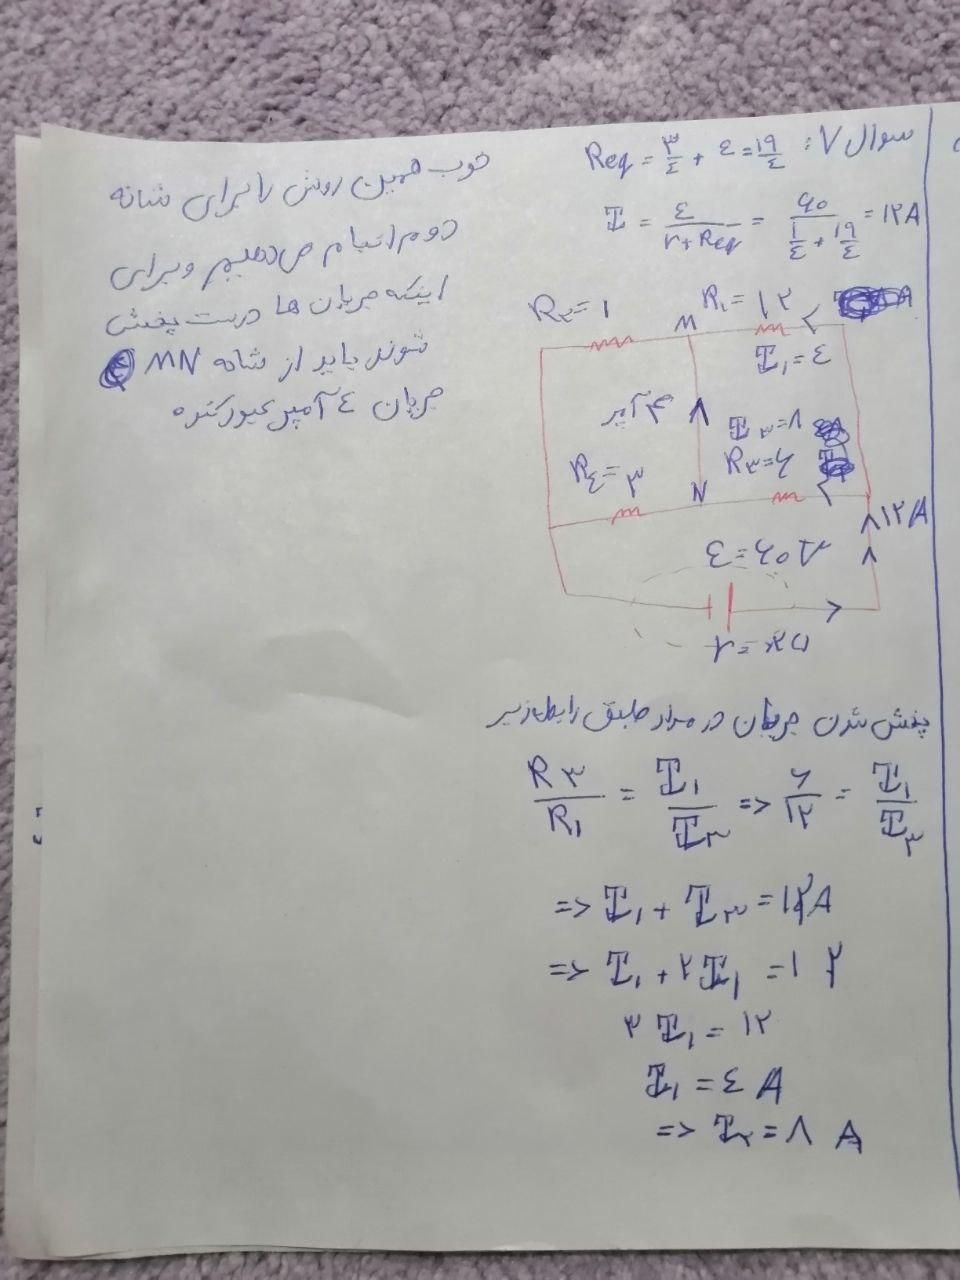 سوال ۷: Req = ۳/٤ + ٤ = ۱۹/٤
I = ε / r + Req = ۶۰ / ۱/٤ + ۱۹/٤ = ۱۲A
خوب همین روش را برای شانه
دوم انجام می‌دهیم و برای
اینکه جریان ها درست پخش
شوند باید از شانه MN
جریان ٤ آمپر عبور کنده
R۲ = ۱
M
R۱ = ۱۲
I۱ = ٤
۴ آمپر
I۳ = ۸
R۳ = ۶
R٤ = ۳
N
۱۲A
ε = ۶۰
پخش شدن جریان در مدار طبق رابطه زیر
R۳/R۱ = I۱/I۳ => ۶/۱۲ = I۱/I۳
=> I۱ + I۳ = ۱۲A
=> I۱ + ۲I۱ = ۱۲
۳I۱ = ۱۲
I۱ = ٤ A
=> I۳ = ۸ A